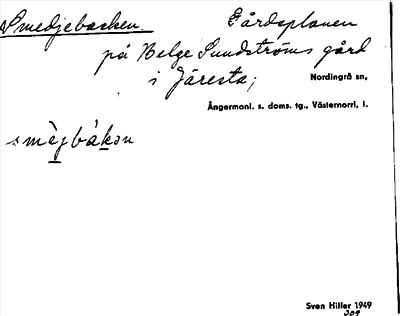 Smedjebacken. Gårdsplanen
på Helge Sundströms gård
i Järesta;
Nordingrå sn,
Ångermanl. s. doms. tg., Västernorrl. l.
smèjbàkən
Sven Hiller 1949
309